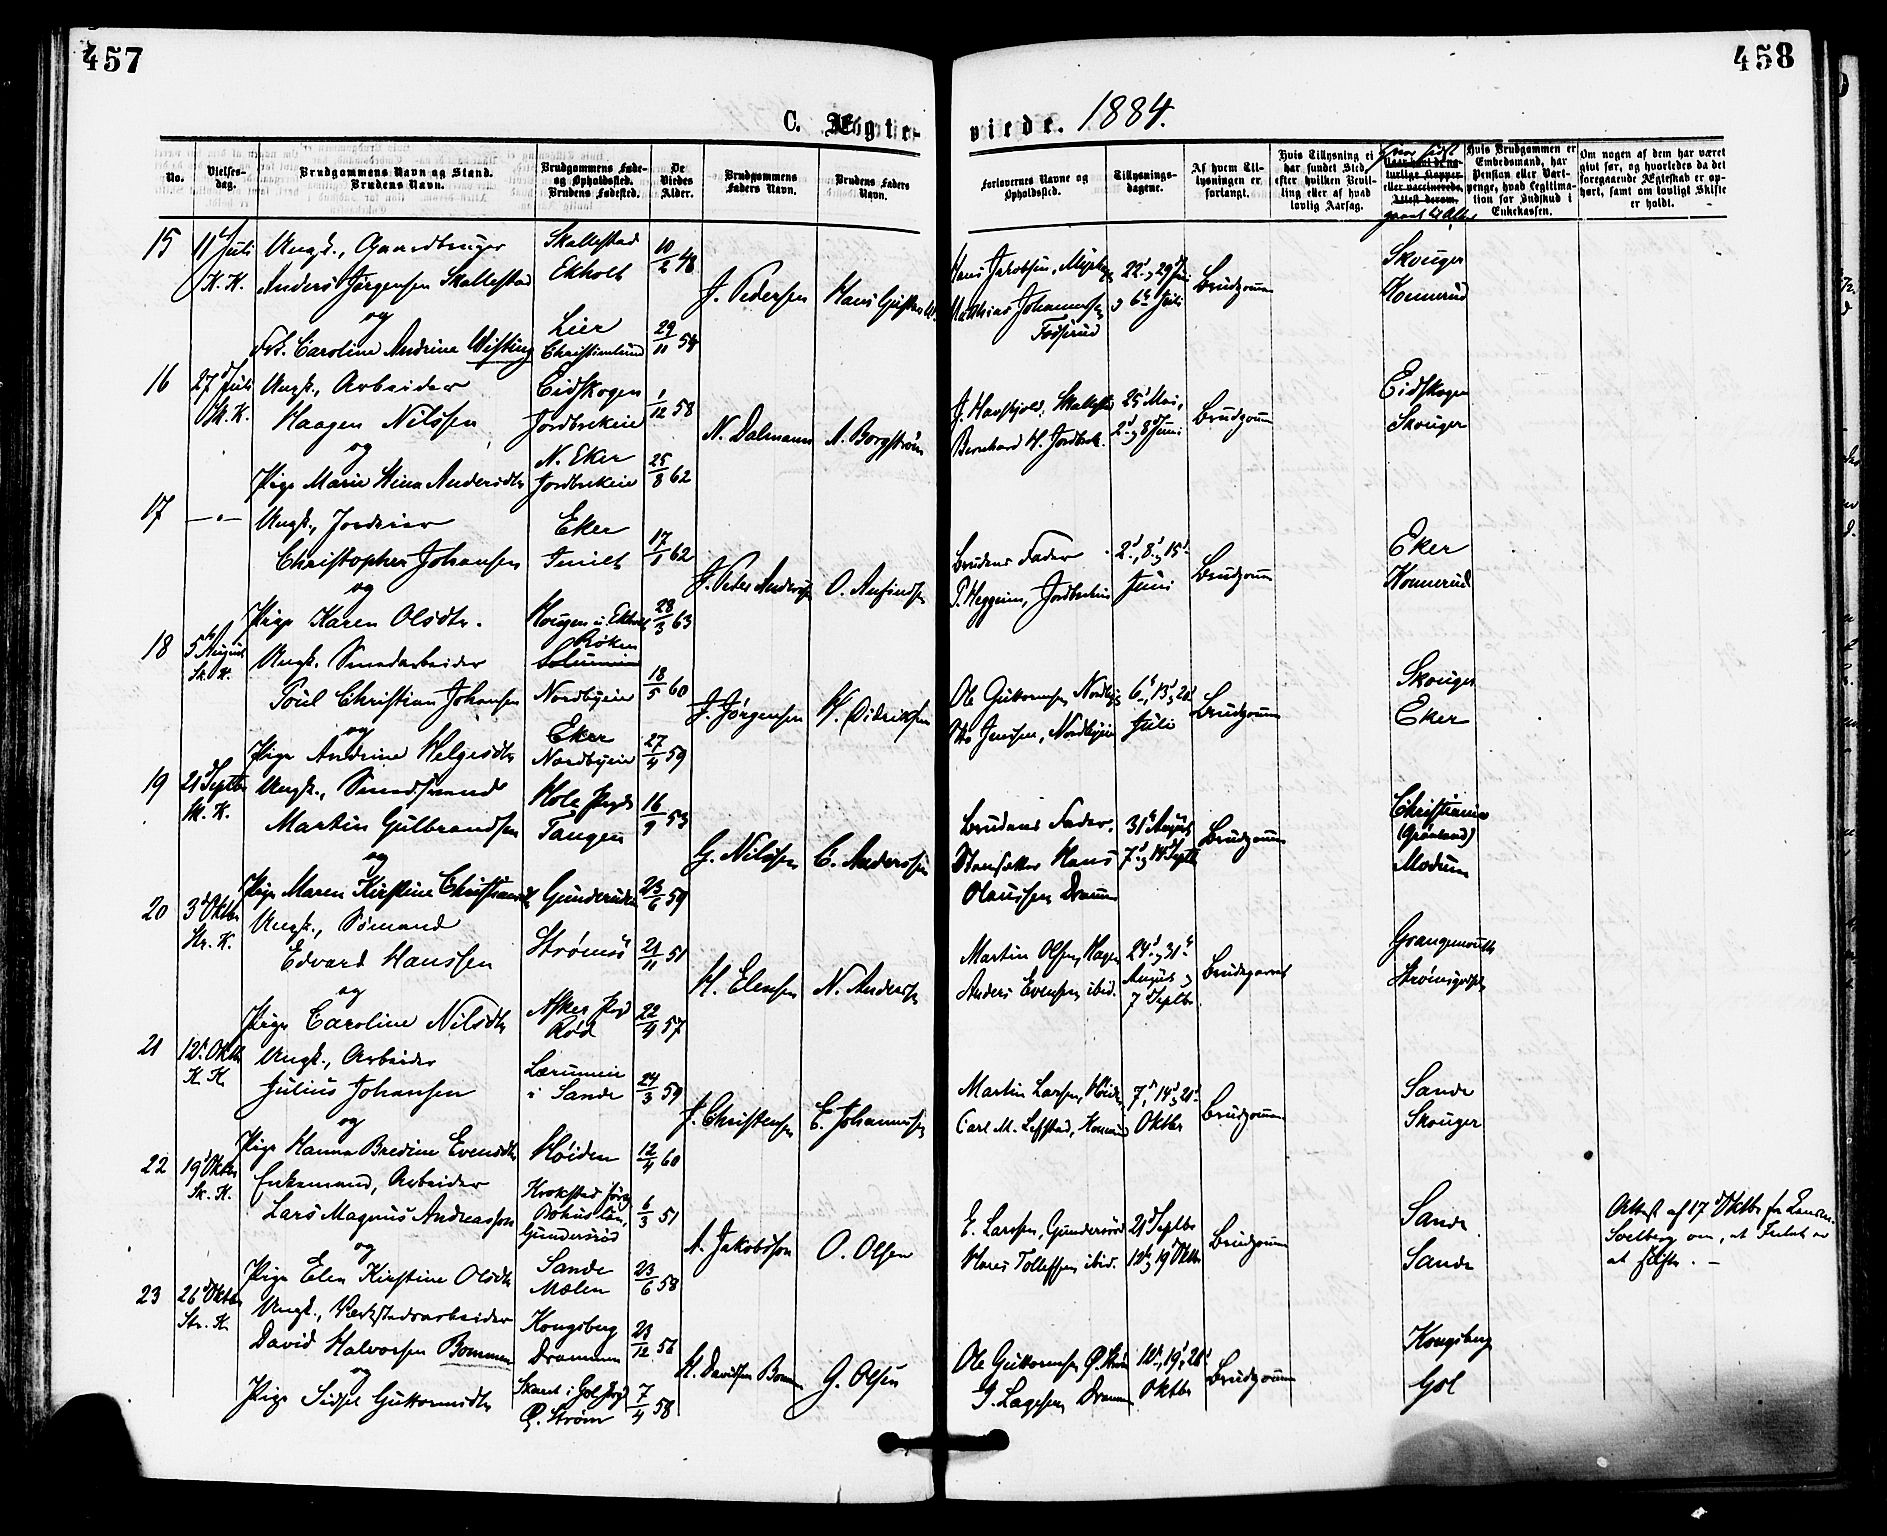 457
458
C. Ægte-
viede. 1884.
No.
Vielses-
dag.
Brudgommens Navn og Stand.
Brudens Navn.
Brudgommens Føde-
og Opholdssted.
Brudens Fødested.
De
Viedes
Alder.
Brudgommens
Faders Navn.
Brudens Faders
Navn.
Forlovernes Navne og
Opholdssted.
Tillysnings-
dagene.
Af hvem Til-
lysningen er
forlangt.
Hvis Tillysning ei
har fundet Sted,
efter hvilken Bevil-
ling eller af hvad
lovlig Aarsag.
Hvis Brudgommen er
Embedsmand, har
Pension eller Vart-
penge, hvad Legitima-
tion for Indskud i
Enkekassen.
Om nogen af dem har været
givt før, og hvorledes da det
foregaaende Ægteskab er op-
hørt, samt om lovligt Skifte
er holdt.
15
11 Juli
K. K.
Ungk., Gaardbruger
Anders Jørgensen Skallestad
og
Frk. Caroline Andrine Wisting
Skallestad
Ekholt
Lier
Christianlund
10/2 48
29/11 54
J. Pedersen
Hans Gustav W.
Hans Jacobsen,
Mathias Johannessen
22d, 29d Juni
6te Juli
Brudgommen
Skouger
Konnerud
16
27d Juli
Sk. K.
Ungk., Arbeider
Haagen Nilssen
og
Pige Marie Stina Andersdtr
Eidskogen
Jordbrekeie
N. Eker
Jordbrekeie
1/12 58
25/8 62
N. Dalmann
A. Borgstrøm
J. Havskjold, Skallestad
Bernhard H. Jordbrek.
25d Mai,
2d, 8d Juni
Brudgomm
Eidskogen
Skouger
17
— " —
Ungk.,
Christopher Johansen
og
Pige Karen Olsdtr.
Eker
Haugen u. Ekholt
17/1 62
28/3 63
J. Peter Anderssen
O. Anfindsen
Brudens Fader
P. Heggeim,
2d, 8d, 15d
Juni
Brudgomm
Eker
Konnerud
18
5 August
St. K.
Ungk. Smedarbeider
Poul Christian Johansen
og
Pige Andrine Helgesdtr
Røken
Nordbyeie
Eker
Nordbyeie
18/5 60
27/4 59
J. Jørgensen
H. Didriksen
Ole Guttormsen, Nordbye
Otto Jenssen, Nordbyeie
6d, 13d, 20d
Juli
Brudgomm
Skouger
Eker
19
21d Septbr
Sk. K.
Ungk., Smedsvend
Martin Gulbrandsen
og
Pige Maren Kirstine Christiansdtr
Hole Pgd
Tangen
Gunderud
16/9 53
23/6 59
G. Nilssen
C. Anderssen
Brudens Fader,
Hans
Olaussen Drammen
31te August
7d, 14d Septbr
Brudgomm
Christiania
(Grønland)
Modum
20
3d Oktbr
Str. K.
Ungk., Sømand
Edvard Hanssen
og
Pige Caroline Nilsdtr
Strømsø
Asker Pgd
Rød
21/11 51
22/4 57
H. Elensen
N. Anderssen
Martin Olsen, Hagen
Anders Evensen, ibid.
24d, 31te
August
7 Septbr
Brudeparret
Grangemouth
Strømsgodset
21
12te Oktbr
K. K.
Ungk., Arbeider
Julius Johansen
og
Pige Hanna Bredine Evensdtr
Lerumeie
i Sande
Høiden
24/3 59
12/4 60
J. Christensen
E. Johannessen
Martin Larsen, Høiden
Carl M.
7d, 14d, 21d
Oktbr
Brudgomm
Sande
Skouger
22
19d Oktbr
Sk. K.
Enkemand, Arbeider
Lars Magnus Andreasson
og
Pige Elen Kirstine Olsdtr
Krokstad
Bohus län,
Gundersrød
Sande
Mælen
6/3 51
23/6 58
A. Jakobsson
O. Olsen
E. Larssen, Gundersrød
Hans Tollefsen, ibid.
21d Septbr
12te, 19d Oktbr
Brudgomm
Sande
Sande
Attest af 17d Oktbr fra Lensm.
Svelberg om, at Intet er
at skifte. —
23
26d Oktbr
Str. K.
Ungk., Værkstedsarbeider
David Halvorsen Bommen
og
Pige Sidsel Guttormsdtr
Kongsberg
Drammen
Skaret i Gol Pgd
Ø. Strøm
23/12 56
7/4 58
H. Davidsen Bommen
G. Olsen
Ole Guttormsen, Ø. Strøm
G. Lagesen, Drammen
12te, 19d, 26d
Oktbr
Brudgomm
Kongsberg
Gol